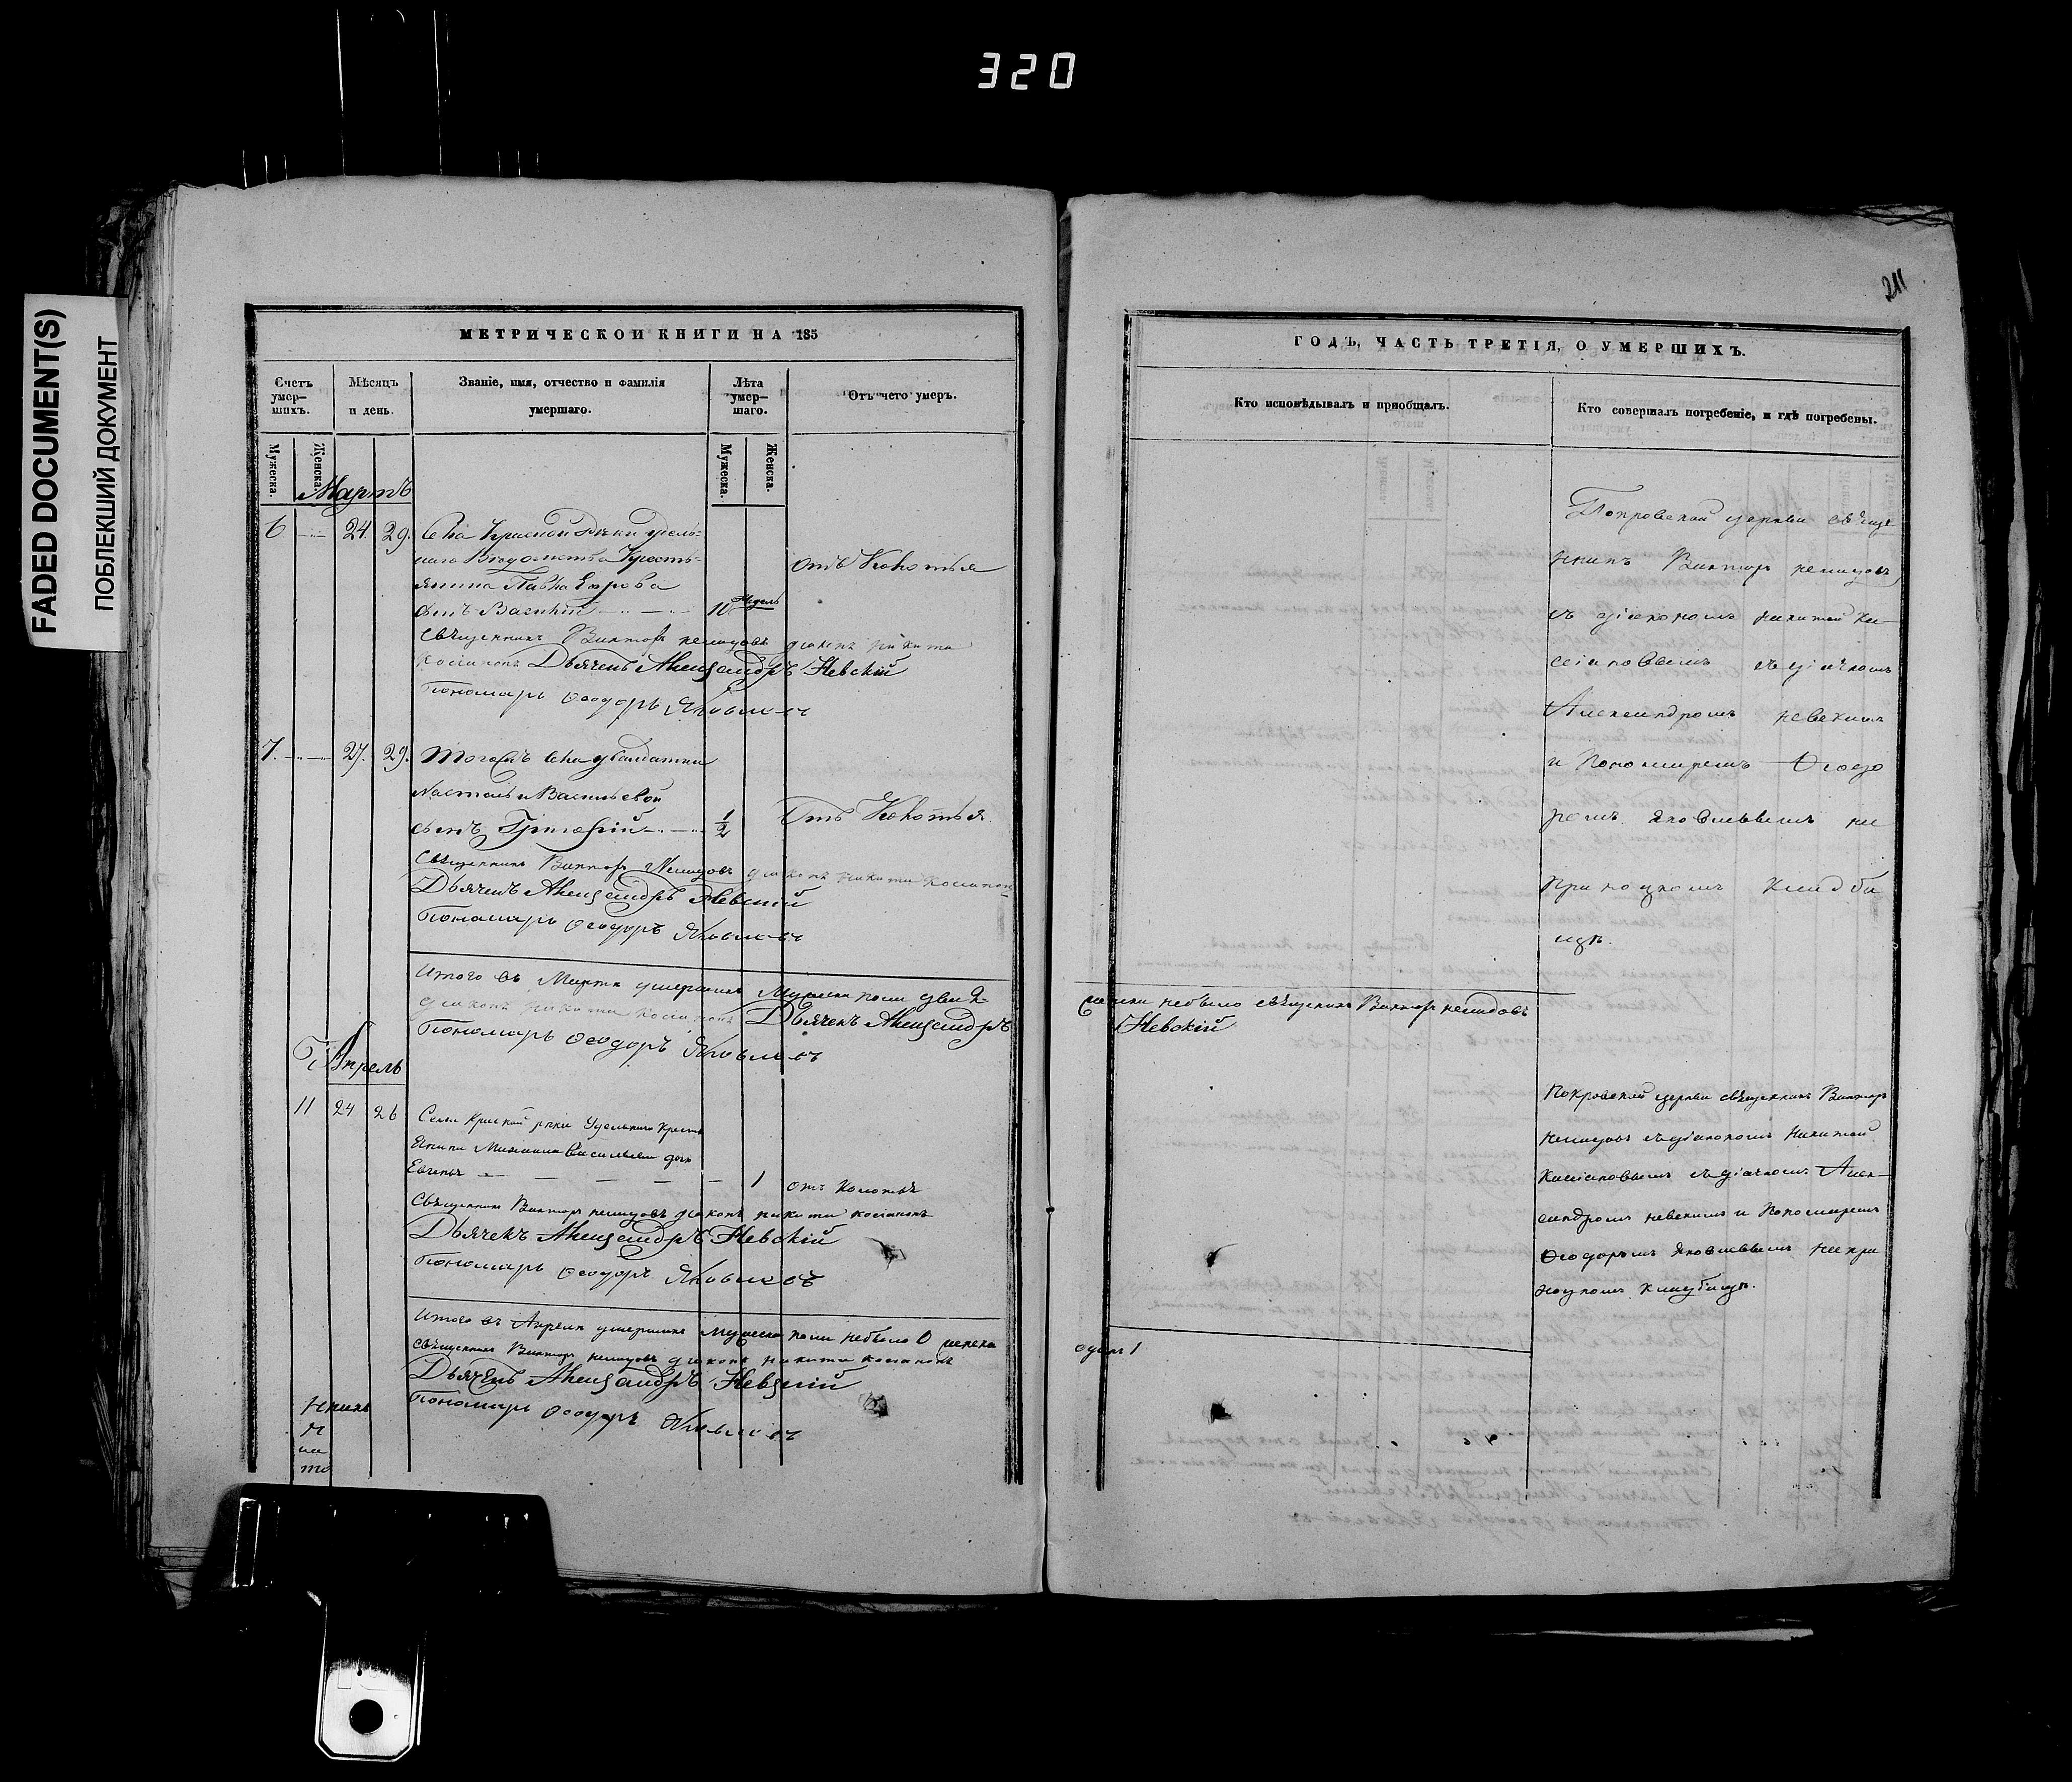 320
FADED DOCUMENT(S)
ПОБЛЕКШИЙ ДОКУМЕНТ
211
МЕТРИЧЕСКОЙ КНИГИ НА 185
Счетъ умер-шихъ.
Мѣсяцъ и день.
Званіе, имя, отчество и фамилія умершаго.
Лѣта умер-шаго.
Отъ чего умеръ.
Мужеска.
Женска.
Мужеска.
Женска.
Мартъ
6 24. 29. Села Красной Рѣки удѣль-
наго Вѣдомства Кресть-
янина Павла Егорова
сынъ Василій 10 недель
отъ Кокотья
Священникъ Викторъ Немидовъ діаконъ Никита
Касіановъ Дьячекъ Александръ Невскій
Пономарь Ѳеодоръ Яковлевъ
7. 27. 29. Тогожъ села солдатки
Настасьи Васильевой
сынъ Григорій 1/2
Отъ Кокотья
Священникъ Викторъ Немидовъ діаконъ Никита Касіанов
Дьячекъ Александръ Невскій
Пономарь Ѳеодоръ Яковлевъ
Итого въ Мартѣ умершихъ Мужеска пола два 2
діаконъ Никита Касіановъ Дьячекъ Александръ
Пономарь Ѳеодоръ Яковлевъ
Апрель
11 24 26 Села Красной рѣки Удельнаго Кресть
янина Василья дочь
Евгенья 1 отъ Кокотья
Священникъ Викторъ Немидовъ діаконъ Никита Касіановъ
Дьячекъ Александръ Невскій
Пономарь Ѳеодоръ Яковлевъ
Итого въ Апрелѣ умершихъ Мужеска пола небыло 0 женска
Священникъ Викторъ Немидовъ діаконъ Никита Касіановъ
Дьячекъ Александръ Невскій
Пономарь Ѳеодоръ Яковлевъ
ГОДЪ, ЧАСТЬ ТРЕТІЯ, О УМЕРШИХЪ.
Кто исповѣдывалъ и пріобщалъ.
Кто совершалъ погребеніе, и гдѣ погребены.
Покровской церкви свѣще
нникъ Викторъ Немидовъ
съ діакономъ Никитой Ка-
сіановымъ съ дьячкомъ
Александромъ Невскимъ
и Пономаремъ Ѳеодо
ромъ Яковлевымъ на
приходскомъ кладби
щѣ.
женска небыло священникъ Викторъ Немидовъ
Невскій
Покровской церкви священникъ Викторъ
Немидовъ съ діакономъ Никитой
Касіановымъ съ дьячкомъ Алек-
сандромъ Невскимъ и Пономаремъ
Ѳеодоромъ Яковлевымъ на при
ходскомъ кладбищѣ.
одна 1